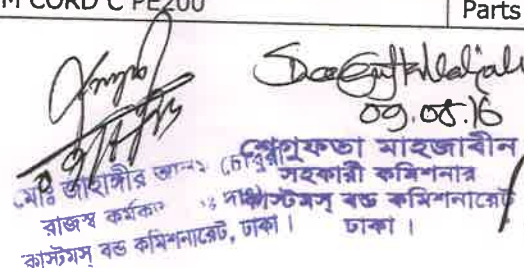 M CORD C PE200
Parts
09.08.16
শেগুফতা মাহজাবীন
সহকারী কমিশনার
কাস্টমস্ বন্ড কমিশনারেট
ঢাকা।
মোঃ জাহাঙ্গীর আলম চৌধুরী
রাজস্ব কর্মকর্তা
কাস্টমস্ বন্ড কমিশনারেট, ঢাকা।